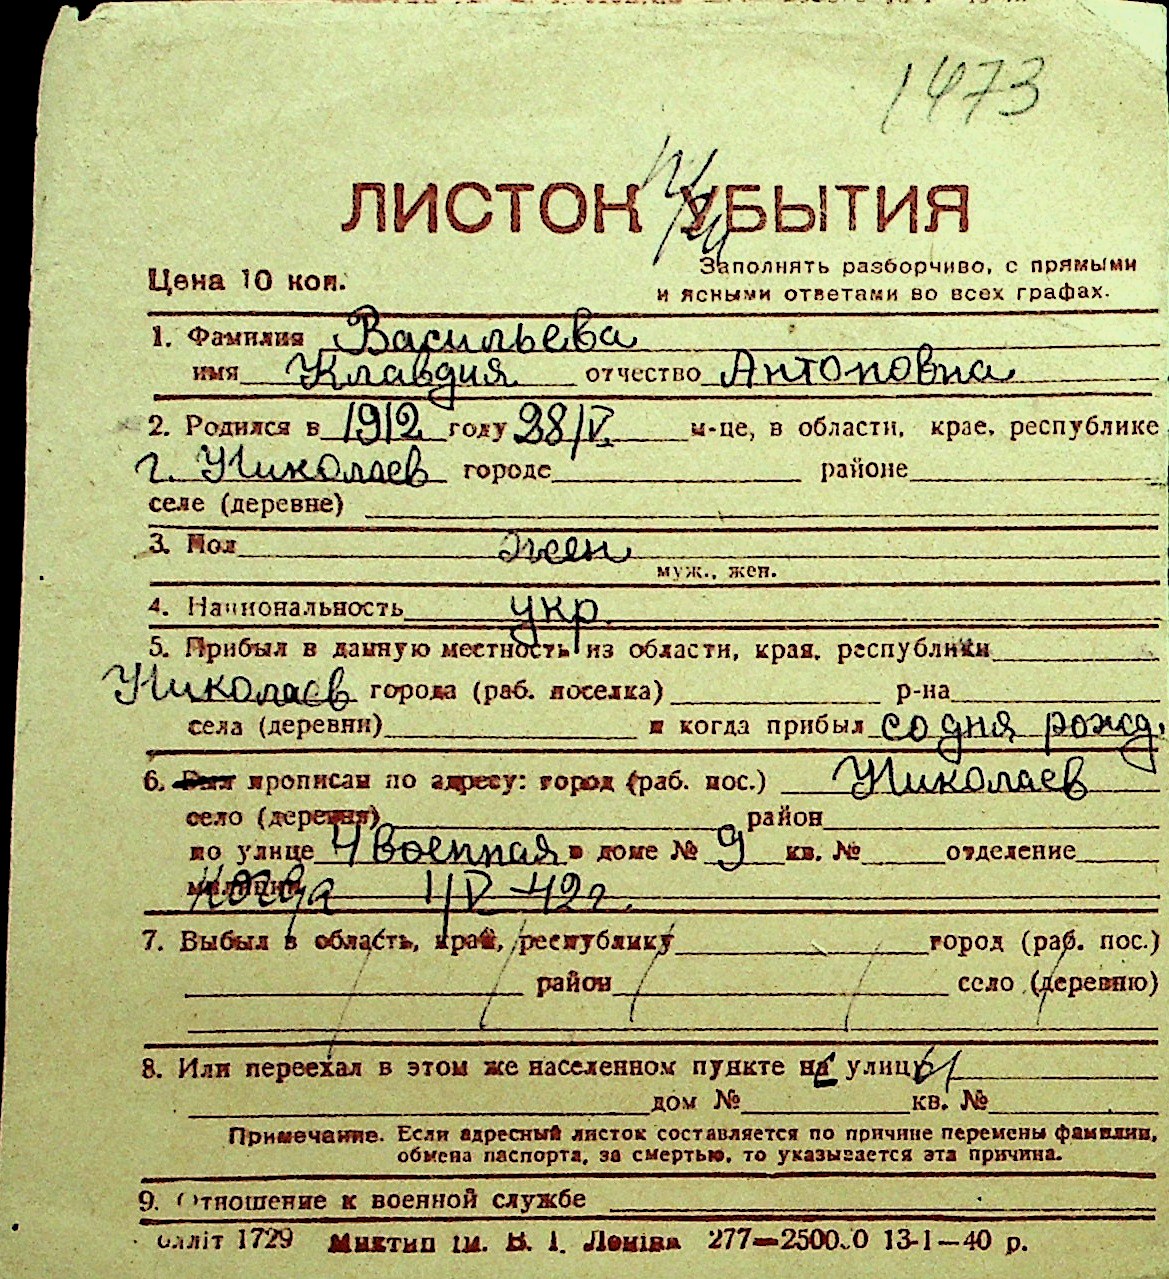 1473
ЛИСТОК УБЫТИЯ
Цена 10 коп.
Заполнять разборчиво, с прямыми
и ясными ответами во всех графах.
1. Фамилия Васильева
имя Клавдия отчество Антоновна
2. Родился в 1912 году 28/V м-це, в области, крае, республике
г. Николаев городе районе
селе (деревне)
3. Пол жен
муж., жен.
4. Национальность укр.
5. Прибыл в данную местность из области, края, республики
Николаев города (раб. поселка) р-на
села (деревни) и когда прибыл со дня рожд.
6. Был прописан по адресу: город (раб. пос.) Николаев
село (деревня) район
по улице 4 Военная в доме № 9 кв. № отделение
милиции Когда 1/V-42 г.
7. Выбыл в область, край, республику город (раб. пос.)
район село (деревню)
8. Или переехал в этом же населенном пункте на улицу
дом № кв. №
Примечание. Если адресный листок составляется по причине перемены фамилии,
обмена паспорта, за смертью, то указывается эта причина.
9. Отношение к военной службе
1729 Миктип ім. В. І. Леніна 277—25000 13-1—40 р.